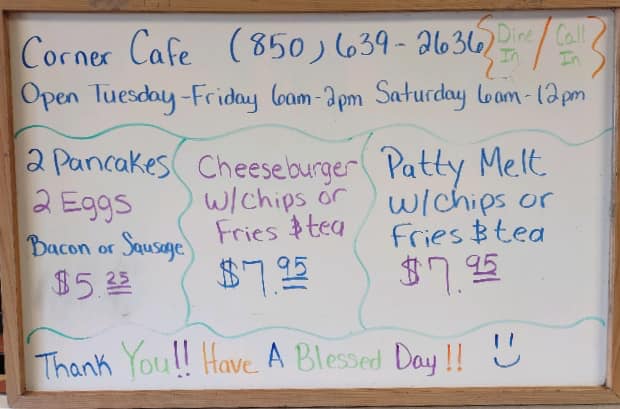 Corner Cafe (850) 639-2636 {Dine In / Call In}
Open Tuesday-Friday 6am-2pm Saturday 6am-12pm
2 Pancakes
2 Eggs
Bacon or Sausage
$5.25
Cheeseburger
w/chips or
Fries & tea
$7.95
Patty Melt
w/chips or
fries & tea
$7.95
Thank You!! Have A Blessed Day!!